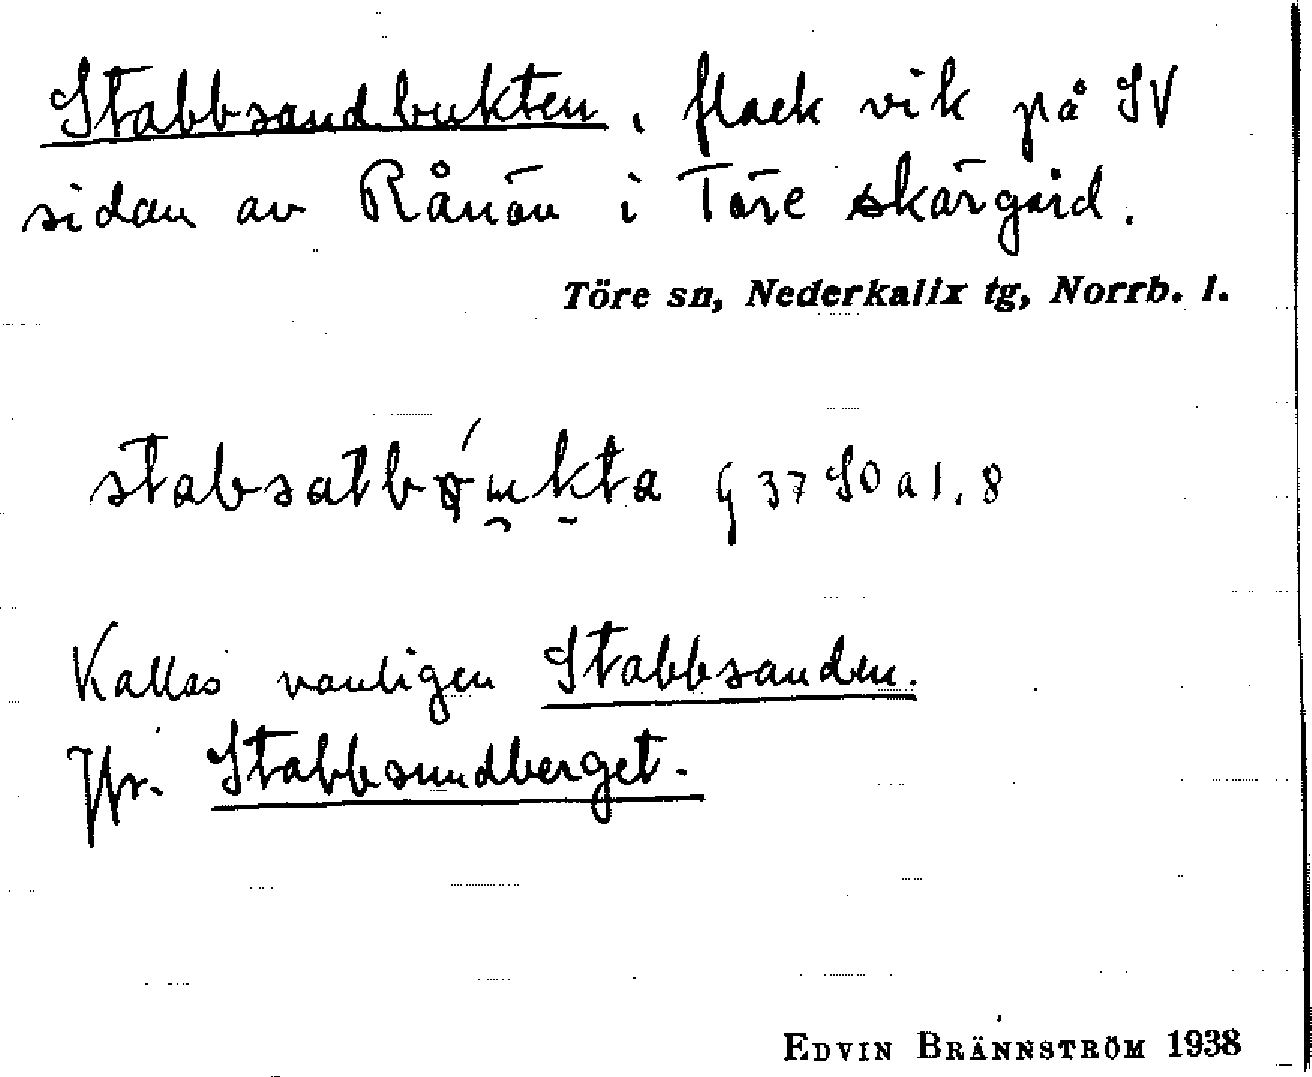 Stabbsandbukten, flack vik på SV
sidan av Rånön i Töre skärgård.
Töre sn, Nederkalix tg, Norrb. l.
37 SO a 1. 8
Kallas vanligen Stabbsanden.
Jfr. Stabbsundberget.
EDVIN BRÄNNSTRÖM 1938